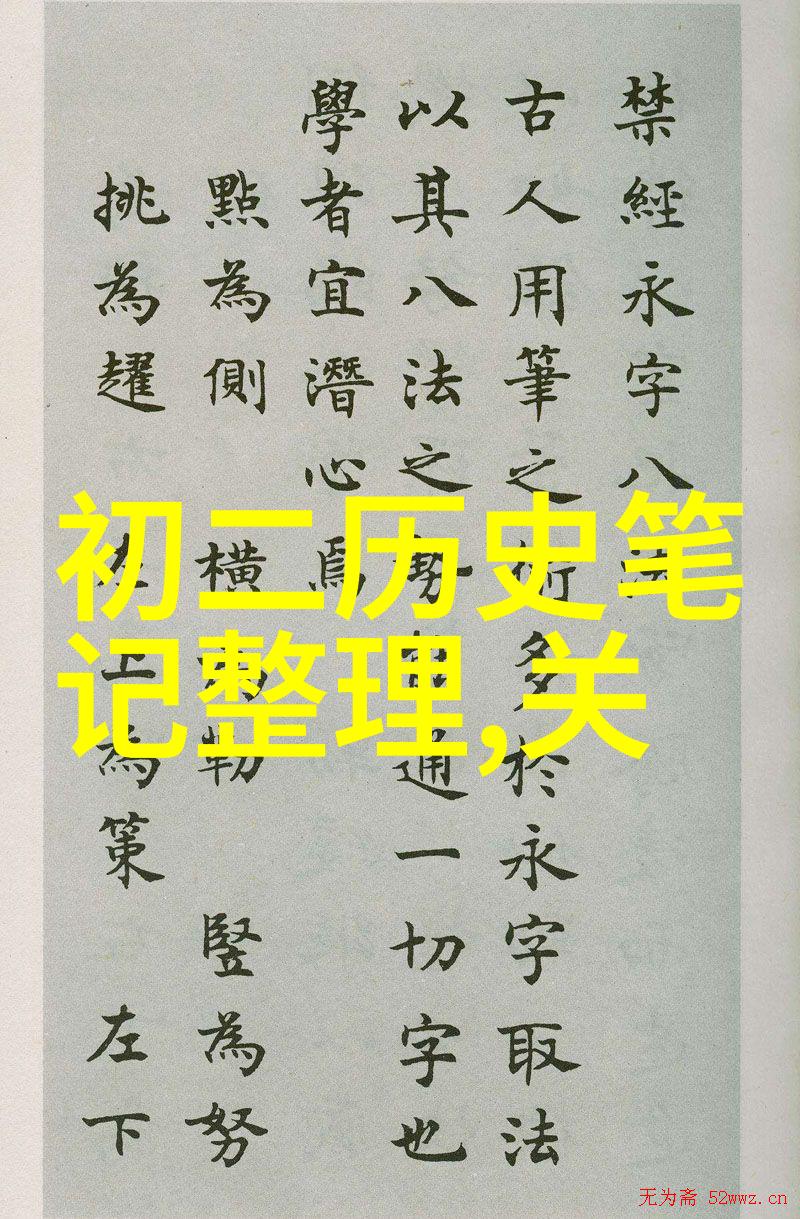 禁經永字八法
古人用筆之術多於永字取法
以其八法之勢能通一切字也
學者宜潛心焉
點為側 橫為勒 豎為努
挑為趯 左上為策 左下
初二历史笔
记整理,关
无为斋 52wwz.cn